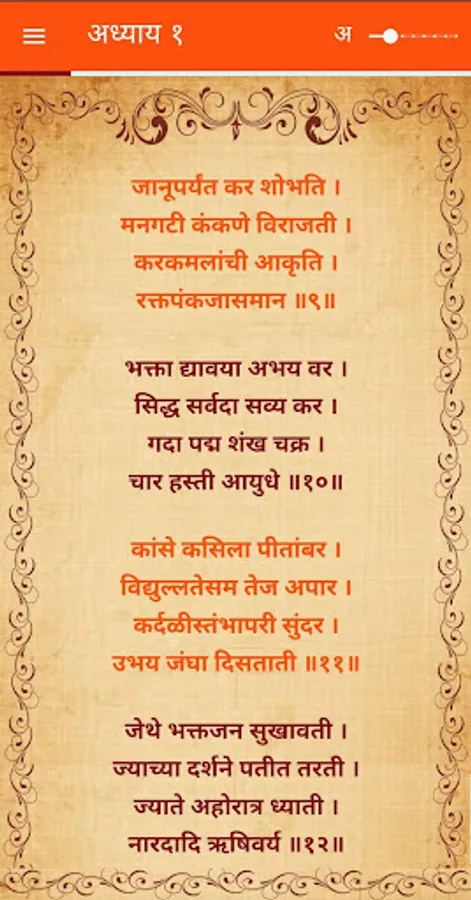 अध्याय १
अ
जानूपर्यंत कर शोभति ।
मनगटी कंकणे विराजती ।
करकमलांची आकृति ।
रक्तपंकजासमान ॥९॥
भक्ता द्यावया अभय वर ।
सिद्ध सर्वदा सव्य कर ।
गदा पद्म शंख चक्र ।
चार हस्ती आयुधे ॥१०॥
कांसे कसिला पीतांबर ।
विद्युल्लतेसम तेज अपार ।
कर्दळीस्तंभापरी सुंदर ।
उभय जंघा दिसताती ॥११॥
जेथे भक्तजन सुखावती ।
ज्याच्या दर्शने पतीत तरती ।
ज्याते अहोरात्र ध्याती ।
नारदादि ऋषिवर्य ॥१२॥